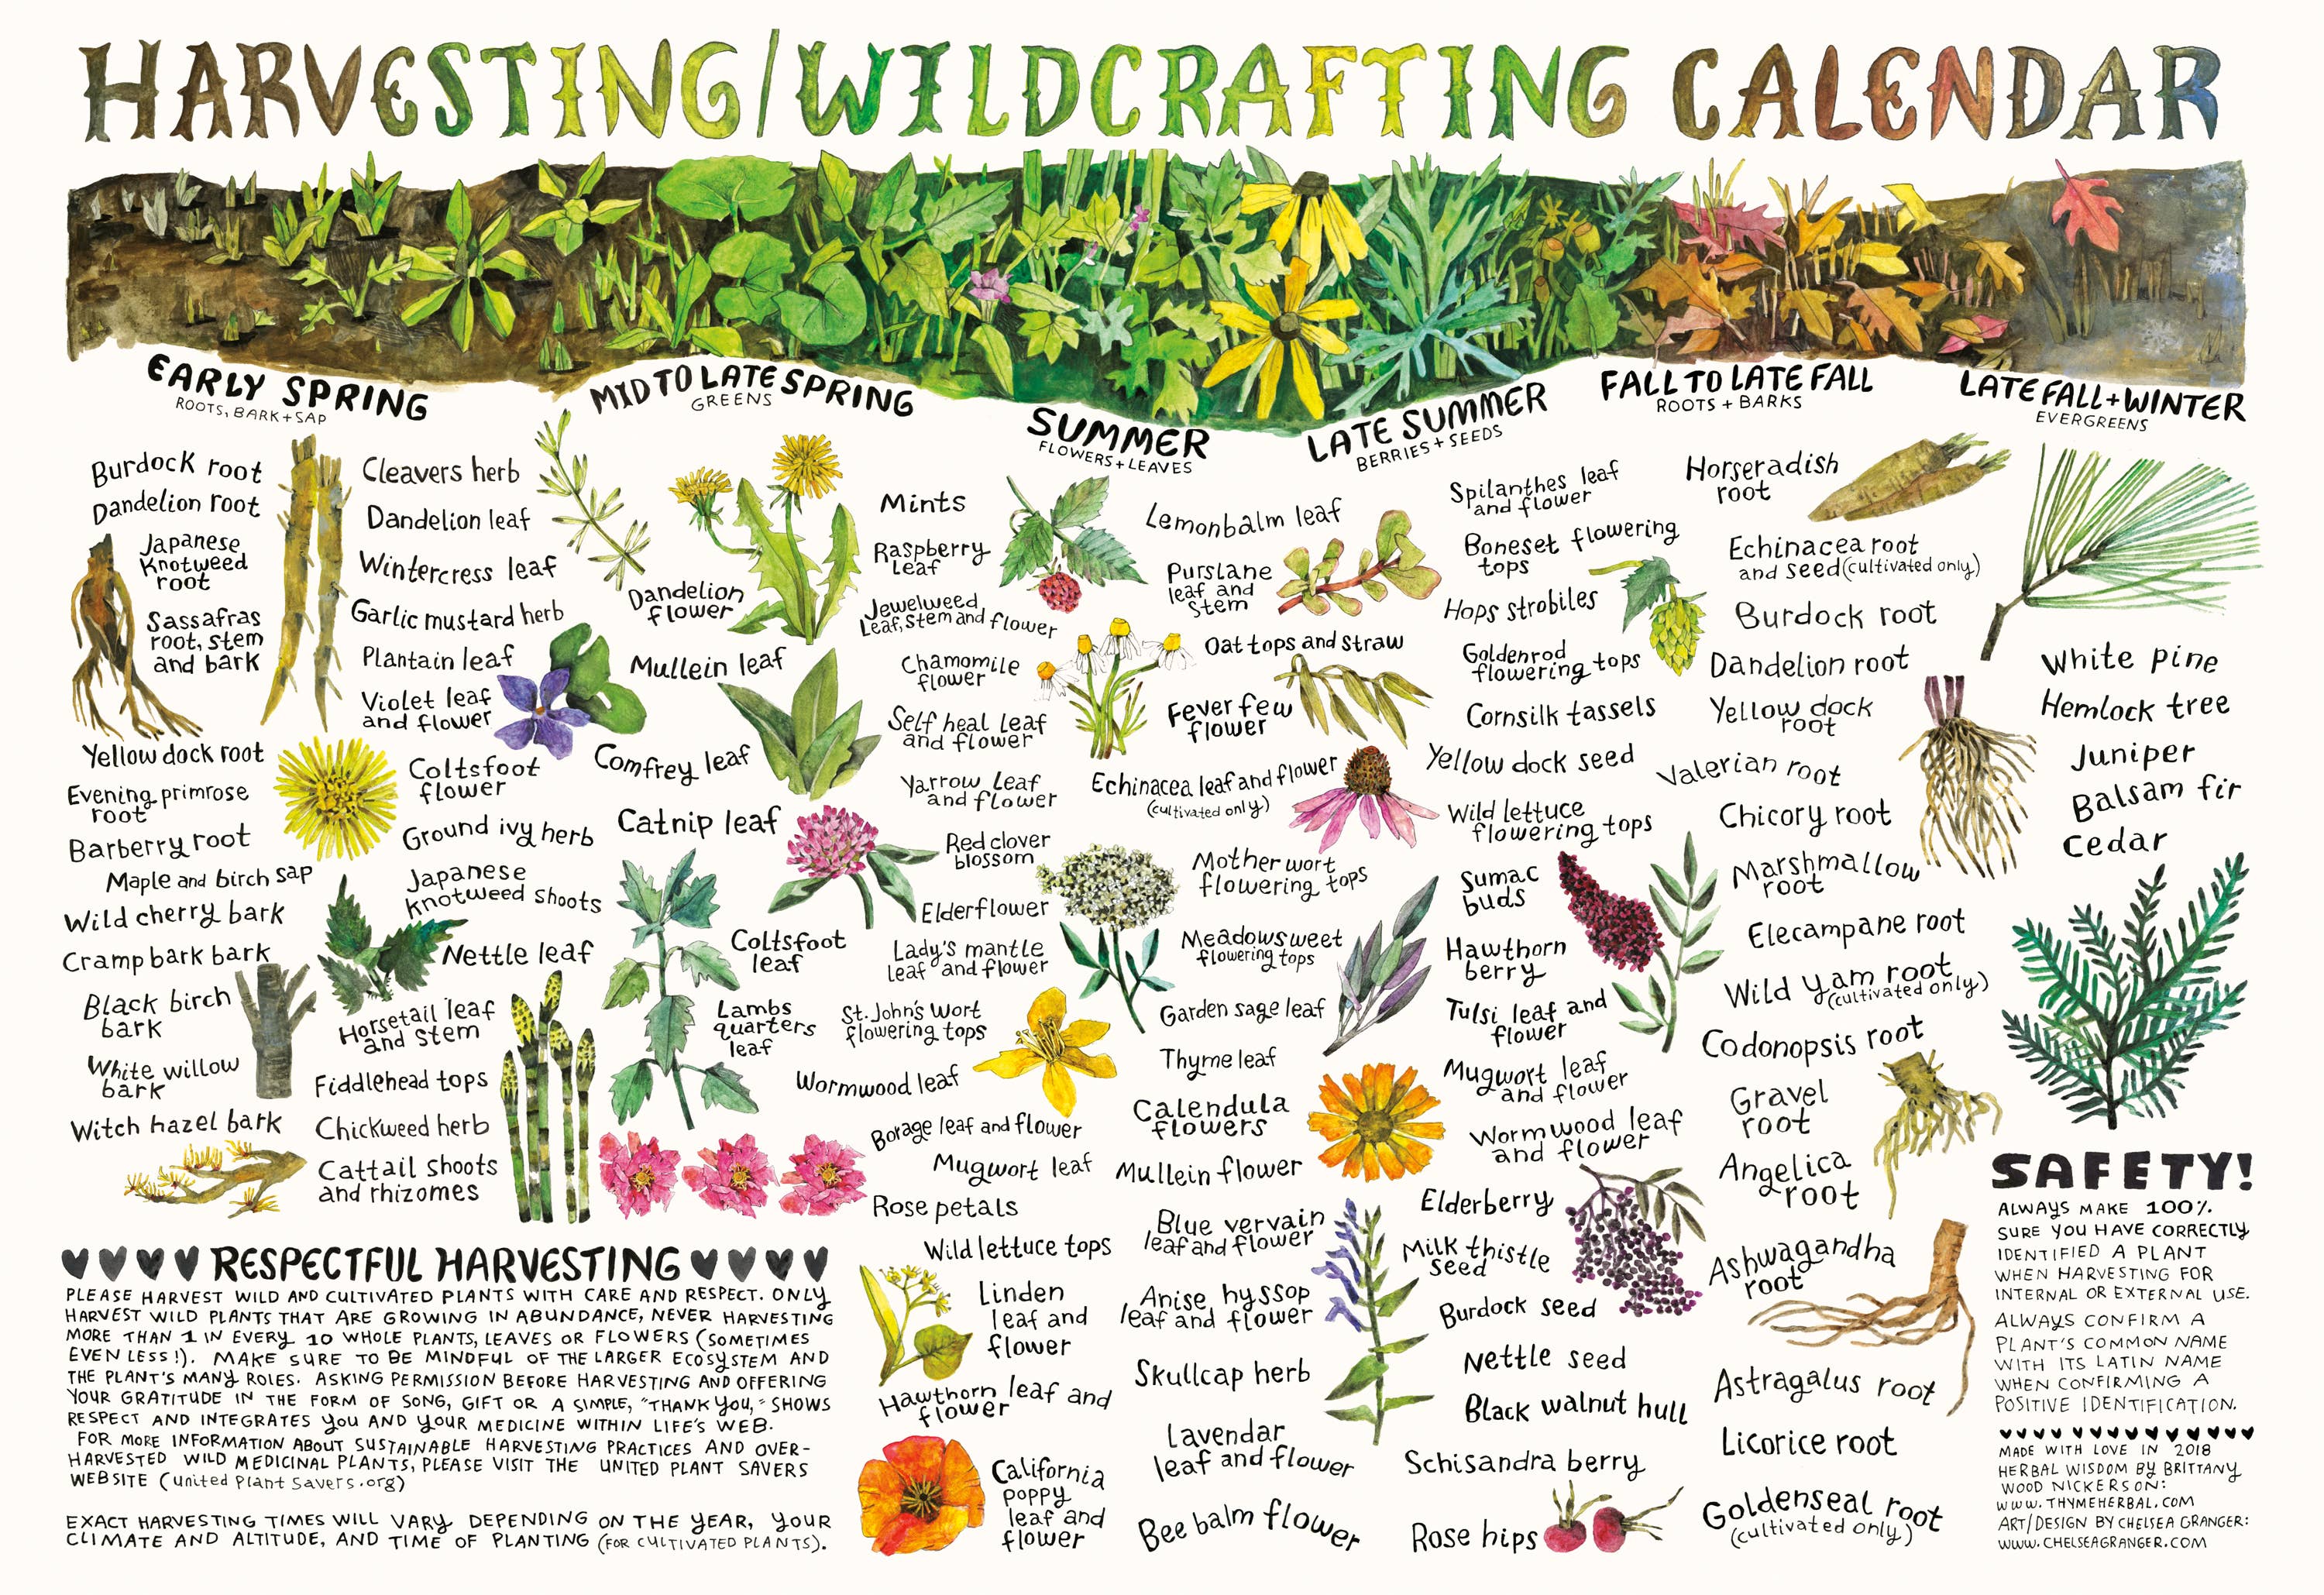 HARVESTING/WILDCRAFTING CALENDAR
EARLY SPRING
ROOTS, BARK + SAP
Burdock root
Dandelion root
Japanese
Knotweed
root
Sassafras
root, stem
and bark
Yellow dock root
Evening primrose
root
Barberry root
Maple and birch sap
Wild cherry bark
Cramp bark bark
Black birch
bark
White willow
bark
Witch hazel bark
MID TO LATE SPRING
GREENS
Cleavers herb
Dandelion leaf
Wintercress leaf
Garlic mustard herb
Plantain leaf
Violet leaf
and flower
Coltsfoot
flower
Ground ivy herb
Japanese
knotweed shoots
Nettle leaf
Horsetail leaf
and stem
Fiddlehead tops
Chickweed herb
Cattail shoots
and rhizomes
Dandelion
flower
Mullein leaf
Comfrey leaf
Catnip leaf
Coltsfoot
leaf
Lambs
quarters
leaf
SUMMER
FLOWERS + LEAVES
Mints
Raspberry
Leaf
Jewelweed
Leaf, stem and flower
Chamomile
flower
Self heal leaf
and flower
Yarrow leaf
and flower
Red clover
blossom
Elderflower
Lady's mantle
leaf and flower
St. John's Wort
flowering tops
Wormwood leaf
Borage leaf and flower
Mugwort leaf
Rose petals
Wild lettuce tops
Linden
leaf and
flower
Hawthorn leaf and
flower
California
poppy
leaf and
flower
Lemonbalm leaf
Purslane
leaf and
stem
Oat tops and straw
Fever few
flower
Echinacea leaf and flower
(cultivated only)
Mother wort
flowering tops
Meadowsweet
flowering tops
Garden sage leaf
Thyme leaf
Calendula
flowers
Mullein flower
Blue vervain
leaf and flower
Anise hyssop
leaf and flower
Skullcap herb
Lavendar
leaf and flower
Bee balm flower
LATE SUMMER
BERRIES + SEEDS
Spilanthes leaf
and flower
Boneset flowering
tops
Hops strobiles
Goldenrod
flowering tops
Cornsilk tassels
Yellow dock seed
Wild lettuce
flowering tops
Sumac
buds
Hawthorn
berry
Tulsi leaf and
flower
Mugwort leaf
and flower
Wormwood leaf
and flower
Elderberry
Milk thistle
seed
Burdock seed
Nettle seed
Black walnut hull
Schisandra berry
Rose hips
FALL TO LATE FALL
ROOTS + BARKS
Horseradish
root
Echinacea root
and seed (cultivated only)
Burdock root
Dandelion root
Yellow dock
root
Valerian root
Chicory root
Marshmallow
root
Elecampane root
Wild yam root
(cultivated only)
Codonopsis root
Gravel
root
Angelica
root
Ashwagandha
root
Astragalus root
Licorice root
Goldenseal root
(cultivated only)
LATE FALL + WINTER
EVERGREENS
White pine
Hemlock tree
Juniper
Balsam fir
Cedar
RESPECTFUL HARVESTING
PLEASE HARVEST WILD AND CULTIVATED PLANTS WITH CARE AND RESPECT. ONLY
HARVEST WILD PLANTS THAT ARE GROWING IN ABUNDANCE, NEVER HARVESTING
MORE THAN 1 IN EVERY 10 WHOLE PLANTS, LEAVES OR FLOWERS (SOMETIMES
EVEN LESS!). MAKE SURE TO BE MINDFUL OF THE LARGER ECOSYSTEM AND
THE PLANT'S MANY ROLES. ASKING PERMISSION BEFORE HARVESTING AND OFFERING
YOUR GRATITUDE IN THE FORM OF SONG, GIFT OR A SIMPLE, "THANK YOU," SHOWS
RESPECT AND INTEGRATES YOU AND YOUR MEDICINE WITHIN LIFE'S WEB.
FOR MORE INFORMATION ABOUT SUSTAINABLE HARVESTING PRACTICES AND OVER-
HARVESTED WILD MEDICINAL PLANTS, PLEASE VISIT THE UNITED PLANT SAVERS
WEBSITE (united Plant Savers.org)
EXACT HARVESTING TIMES WILL VARY DEPENDING ON THE YEAR, YOUR
CLIMATE AND ALTITUDE, AND TIME OF PLANTING (FOR CULTIVATED PLANTS).
SAFETY!
ALWAYS MAKE 100%
SURE YOU HAVE CORRECTLY
IDENTIFIED A PLANT
WHEN HARVESTING FOR
INTERNAL OR EXTERNAL USE.
ALWAYS CONFIRM A
PLANT'S COMMON NAME
WITH ITS LATIN NAME
WHEN CONFIRMING A
POSITIVE IDENTIFICATION.
MADE WITH LOVE IN 2018
HERBAL WISDOM BY BRITTANY
WOOD NICKERSON:
WWW.THYMEHERBAL.COM
ART/DESIGN BY CHELSEA GRANGER:
WWW.CHELSEAGRANGER.COM